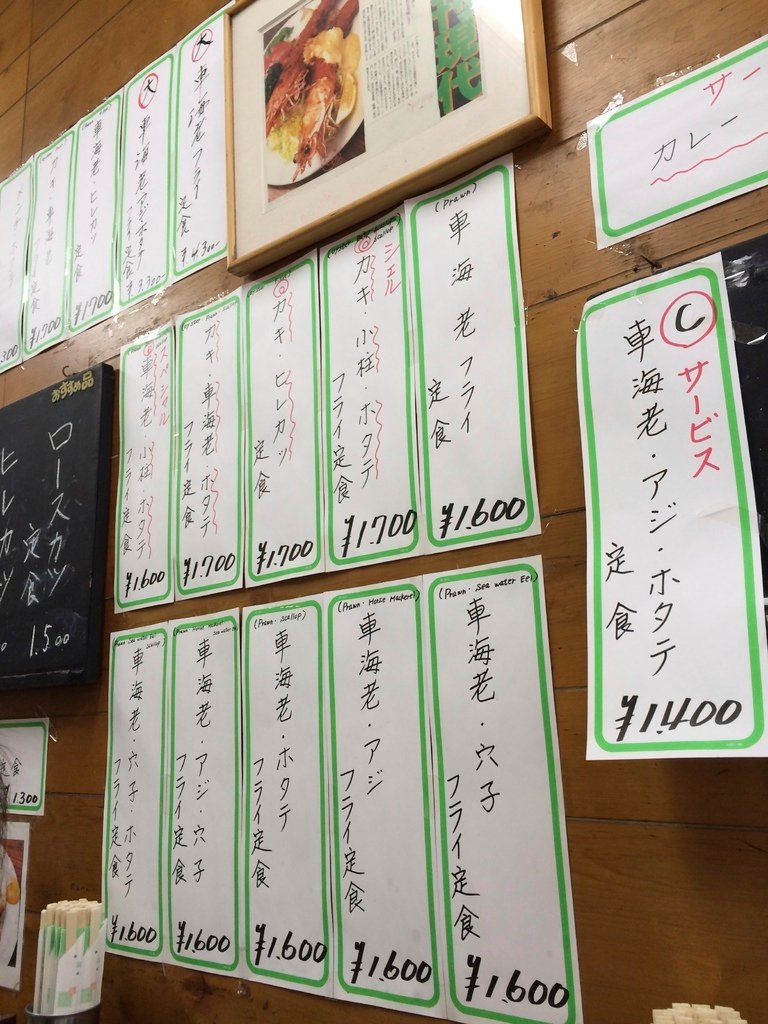 大
車海老フライ
定食
¥4,300-
大
車海老アジホタテ
定食
¥3,300-
車海老・ヒレカツ
定食
¥1,700
カキ・車海老
定食
¥1,700
現代
(Prawn)
車海老フライ
定食
¥1.600
シェル
カキ・小柱・ホタテ
フライ定食
¥1.700
カキ・ヒレカツ
定食
¥1.700
カキ・車海老・ホタテ
フライ定食
¥1.700
スペシャル
車海老・小柱・ホタテ
フライ定食
¥1.600
サー
カレー
C
サービス
車海老・アジ・ホタテ
定食
¥1.400
おすすめ品
ロースカツ
定食
1.500
ヒレカツ
(Prawn・Sea water Eel)
車海老・穴子
フライ定食
¥1.600
(Prawn・Horse Mackerel)
車海老・アジ
フライ定食
¥1.600
(Prawn・Scallop)
車海老・ホタテ
フライ定食
¥1.600
車海老・アジ・穴子
フライ定食
¥1.600
車海老・穴子・ホタテ
フライ定食
¥1.600
定食
1300